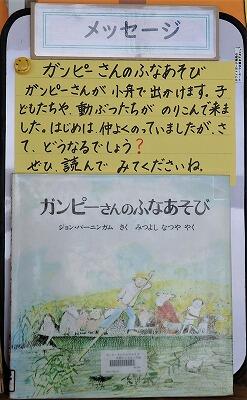 メッセージ
ガンピーさんのふなあそび
ガンピーさんが 小舟で出かけます。子
どもたちや、動ぶつたちが のりこんで来ま
した。はじめは、仲よくのっていましたが、さ
て、どうなるでしょう?
ぜひ、読んで みてくださいね。
ガンピーさんのふなあそび
ジョン・バーニンガム さく みつよし なつや やく